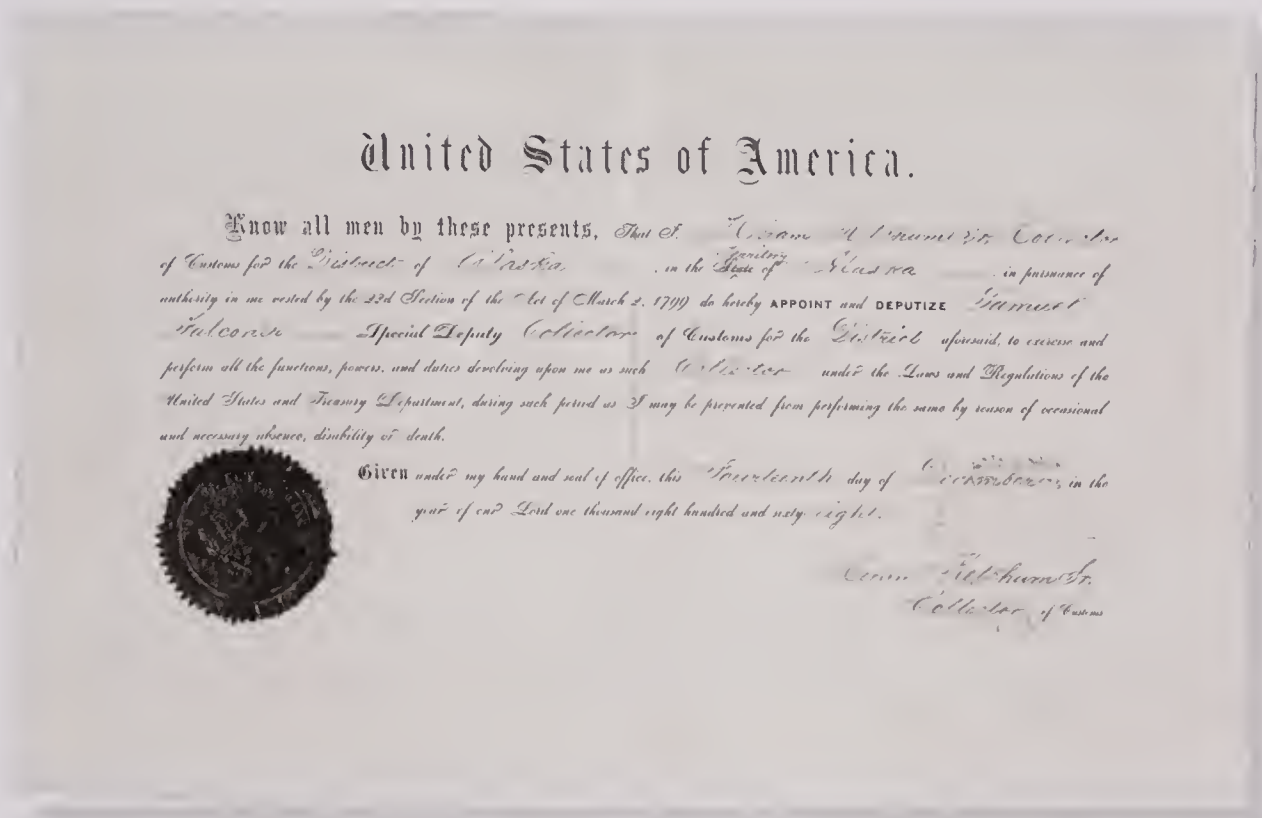 United States of America.
Know all men by these presents, That I, Hiram Ketchum Jr. Collector
of Customs for the District of Alaska, in the State of Territory Alaska in pursuance of
authority in me vested by the 22d Section of the Act of March 2, 1799 do hereby APPOINT and DEPUTIZE Samuel
Falconer Special Deputy Collector of Customs for the District aforesaid, to exercise and
perform all the functions, powers, and duties devolving upon me as such Collector under the Laws and Regulations of the
United States and Treasury Department, during such period as I may be prevented from performing the same by reason of occasional
and necessary absence, disability or death.
Given under my hand and seal of office, this Fourteenth day of December, in the
year of our Lord one thousand eight hundred and sixty eight.
Hiram Ketchum Jr.
Collector of Customs